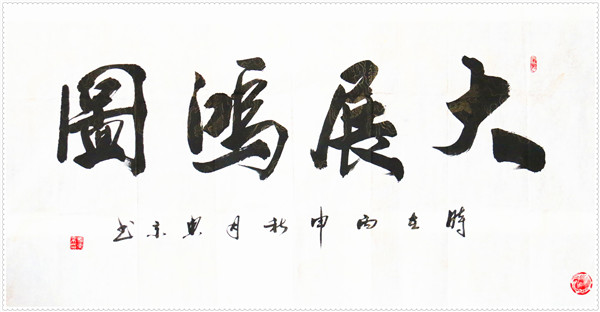 大展鴻圖
時在丙申秋月京书